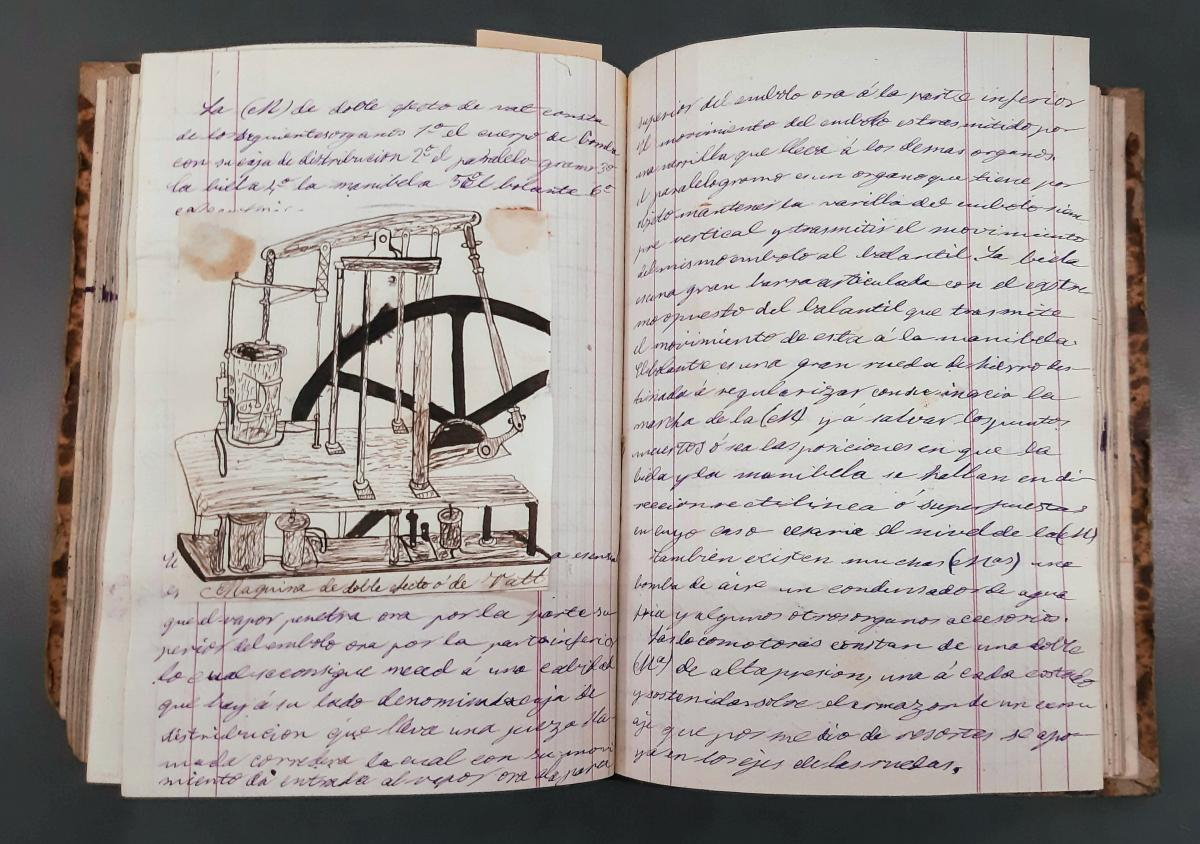 La (M) de doble efecto de vat consta
de los siguientes organos 1º el cuerpo de bomba
con su caja de distribucion 2º el paralelogramo 3º
la biella 4º la manibela 5º El bolante 6º
Maquina de doble efecto ó de Vatt
que el vapor penetra ora por la parte su
perior del embolo ora por la parte inferior
lo cual se consigue merced á una cabidad
que hay á su lado denominada caja de
distribucion que lleva una pieza lla
mada corredera la cual con su movi
miento da entrada al vapor ora á la parte
superior del embolo ora á la parte inferior
El movimiento del embolo es trasmitido por
una varilla que lleva á los demas organos.
El paralelogramo es un organo que tiene por
objeto mantener la varilla del embolo siem
pre vertical y trasmitir el movimiento
del mismo embolo al balantil La biela
es una gran barra articulada con el estre
mo opuesto del balantil que trasmite
el movimiento de esta á la manibela.
El bolante es una gran rueda de hierro des
tinada á regularizar con su inercia la
marcha de la (M) y á salvar los puntos
muertos ó sea las posiciones en que la
biela y la manibela se hallan en di
reccion rectilinea ó superpuestas
en cuyo caso el nivel de la (M)
Tambien existen muchas (Mas) una
bomba de aire un condensador de agua
fria y algunos otros organos acesorios.
Las locomotoras constan de una doble
(Ma) de alta presion, una á cada costado
y sostenidas sobre el armazon de un carru
aje que por medio de resortes se apo
ya en los ejes de las ruedas.